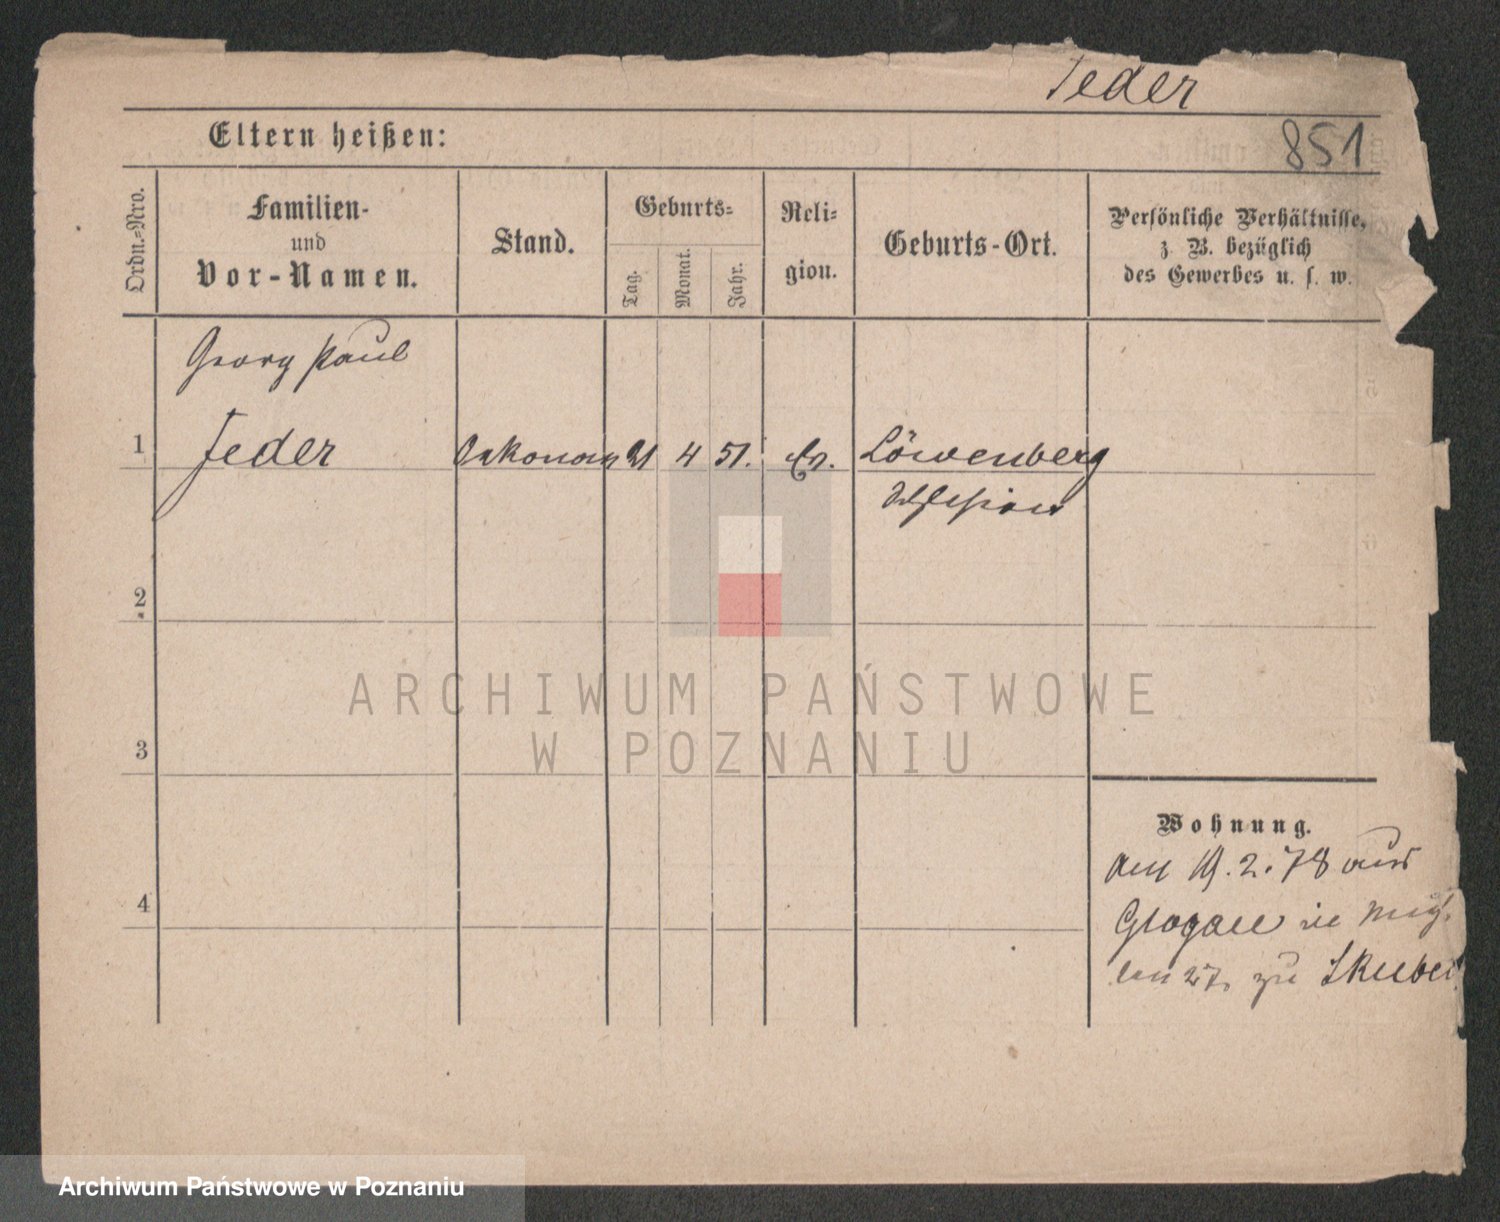 Jeder
851
Eltern heißen:
Ordn.-Nro.
Familien-
und
Vor-Namen.
Stand.
Geburts-
Tag.
Monat.
Jahr.
Reli-
gion.
Geburts-Ort.
Persönliche Verhältnisse,
z. B. bezüglich
des Gewerbes u. s. w.
Georg Paul
1 Jeder Oekonom 21 4 51. Ev. Löwenberg
Schlesien
2
3
4
Wohnung.
am 19.2.78 aus
Glogau
27. zu
ARCHIWUM PAŃSTWOWE
W POZNANIU
Archiwum Państwowe w Poznaniu